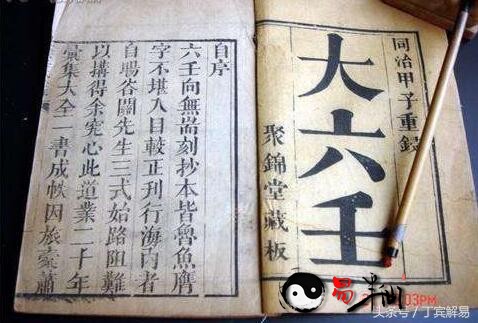 同治甲子重鐫
大六壬
聚錦堂藏板
自序
六壬向無耑刻抄本皆魯魚膺
字不堪入目較正刊行海內者
自先生三式始路阻難
以搆得余究心此道業二十年
彙集大全一書成帙因旅橐蕭
易半仙
03PM
头条号/丁宾解易